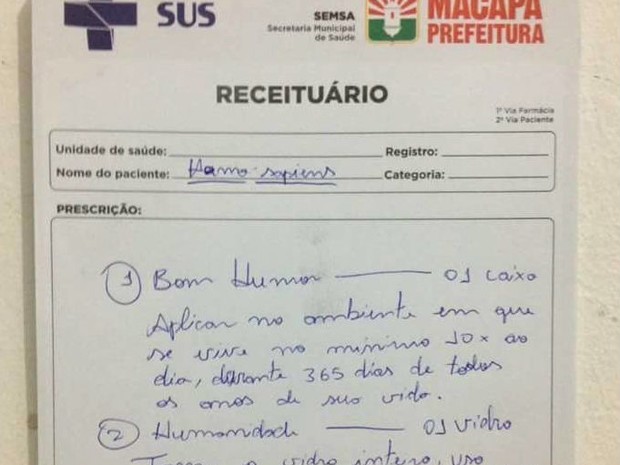 SUS
SEMSA
Secretaria Municipal
de Saúde
MACAPÁ
PREFEITURA
RECEITUÁRIO
1ª Via Farmácia
2ª Via Paciente
Unidade de saúde: Registro:
Nome do paciente: Homo sapiens Categoria:
PRESCRIÇÃO:
1 Bom Humor 01 caixa
Aplicar no ambiente em que
se vive no mínimo 10x ao
dia, durante 365 dias de todos
os anos de sua vida.
2 Humanidade 01 vidro
o vidro inteiro, uso